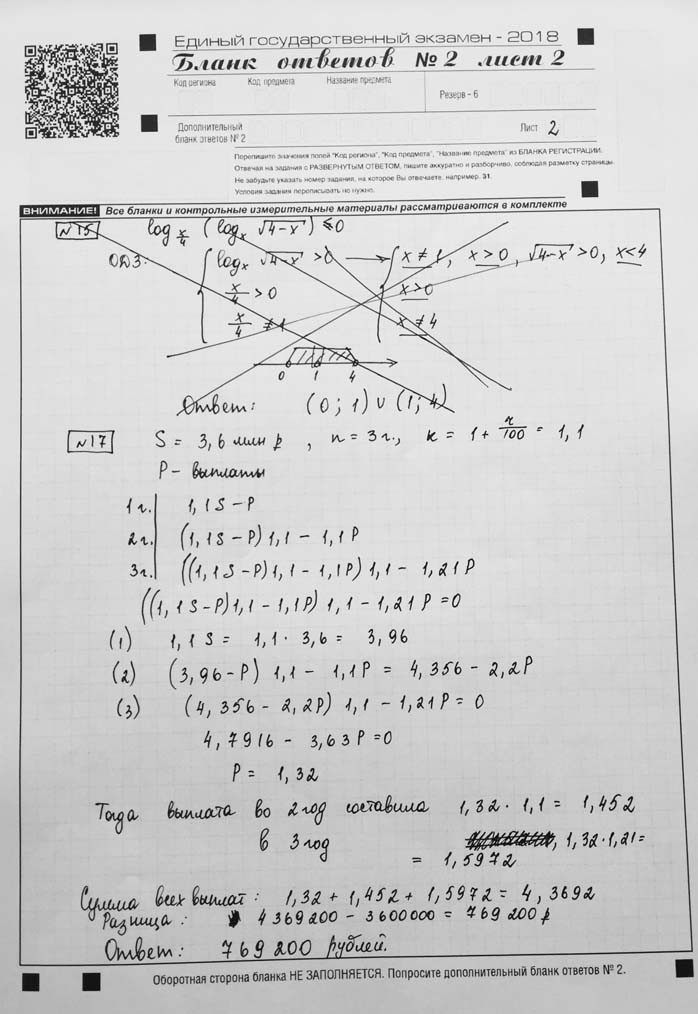 Единый государственный экзамен - 2018
Бланк ответов № 2 лист 2
Код региона Код предмета Название предмета
Резерв - 6
Дополнительный
бланк ответов № 2
Лист 2
Перепишите значения полей "Код региона", "Код предмета", "Название предмета" из БЛАНКА РЕГИСТРАЦИИ.
Отвечая на задания с РАЗВЕРНУТЫМ ОТВЕТОМ, пишите аккуратно и разборчиво, соблюдая разметку страницы.
Не забудьте указать номер задания, на которое Вы отвечаете, например, 31.
Условия задания переписывать не нужно.
ВНИМАНИЕ! Все бланки и контрольные измерительные материалы рассматриваются в комплекте
№15 log x/4 (log x √4-x) ≤ 0
ОДЗ: log x √4-x > 0 → x ≠ 1, x > 0, √4-x > 0, x < 4
x/4 > 0 x > 0
x/4 ≠ 1 x ≠ 4
0 1 4
Ответ: (0; 1) ∪ (1; 4)
№17 S = 3,6 млн р, n = 3 г., к = 1 + r/100 = 1,1
P - выплаты
1 г. 1,1S - P
2 г. (1,1S - P) 1,1 - 1,1P
3 г. ((1,1S - P) 1,1 - 1,1P) 1,1 - 1,21P
((1,1S - P) 1,1 - 1,1P) 1,1 - 1,21P = 0
(1) 1,1S = 1,1 · 3,6 = 3,96
(2) (3,96 - P) 1,1 - 1,1P = 4,356 - 2,2P
(3) (4,356 - 2,2P) 1,1 - 1,21P = 0
4,7916 - 3,63P = 0
P = 1,32
Тогда выплата во 2 год составила 1,32 · 1,1 = 1,452
в 3 год , 1,32 · 1,21 =
= 1,5972
Сумма всех выплат: 1,32 + 1,452 + 1,5972 = 4,3692
Разница: 4369200 - 3600000 = 769200 р
Ответ: 769 200 рублей.
Оборотная сторона бланка НЕ ЗАПОЛНЯЕТСЯ. Попросите дополнительный бланк ответов № 2.